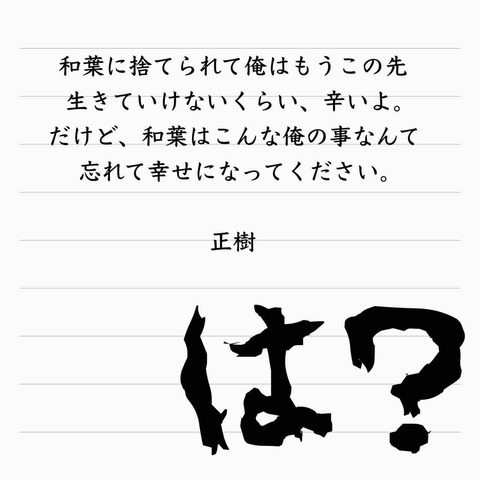 和葉に捨てられて俺はもうこの先
生きていけないくらい、辛いよ。
だけど、和葉はこんな俺の事なんて
忘れて幸せになってください。
正樹
は?